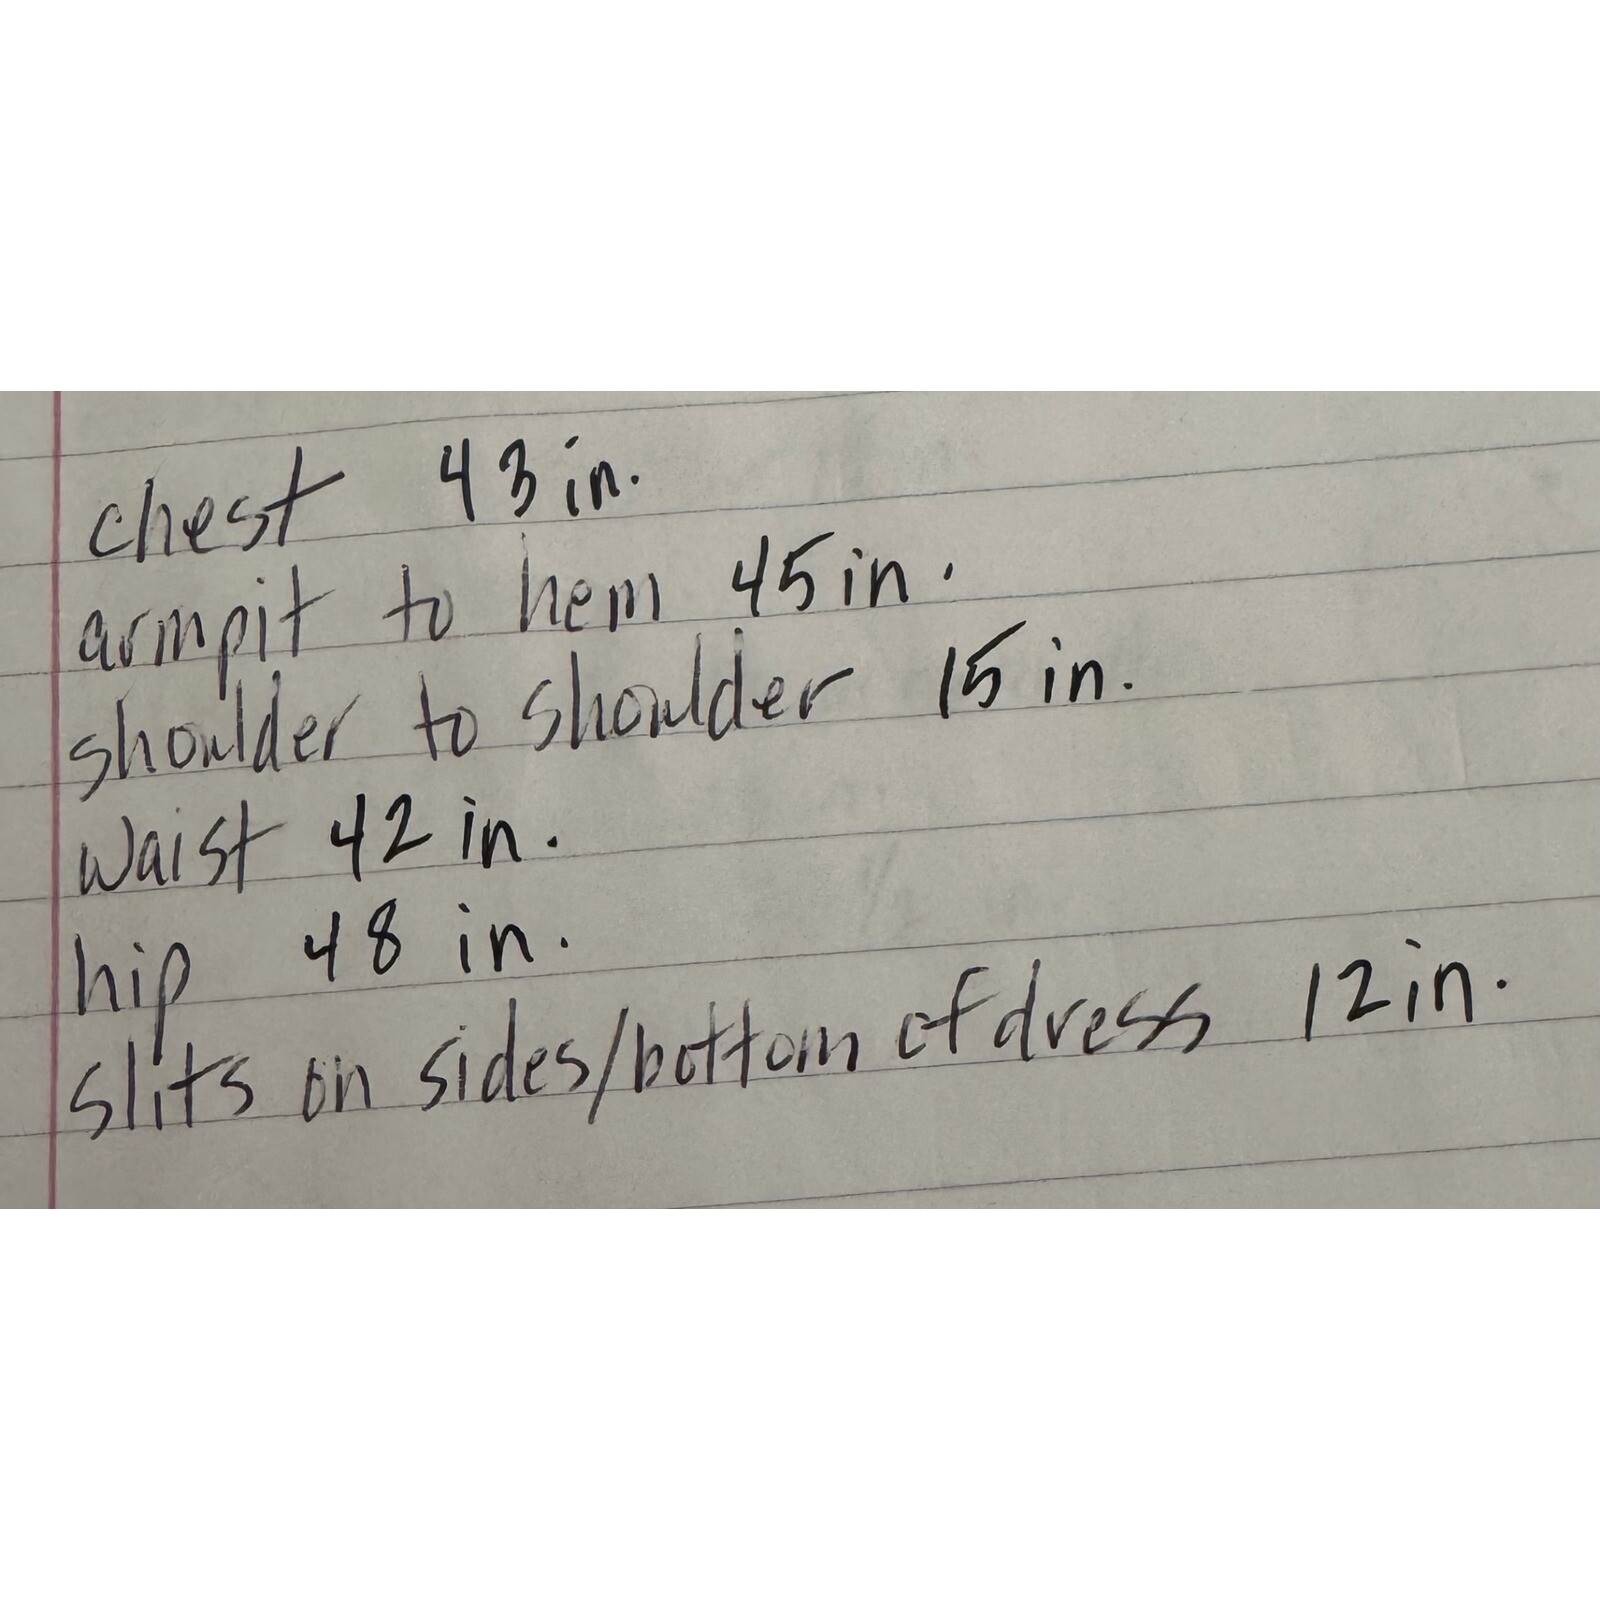 chest 43 in.
armpit to hem 45 in.
shoulder to shoulder 15 in.
waist 42 in.
hip 48 in.
slits on sides/bottom of dress 12 in.